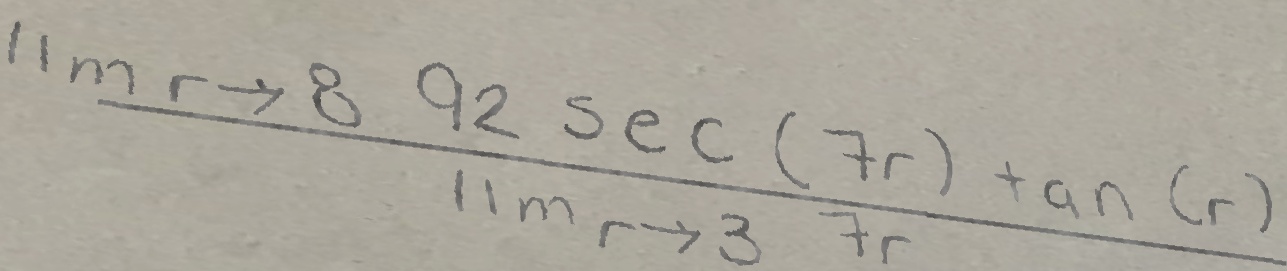 lim r→8 92 sec(7r) tan(r)
lim r→3 7r